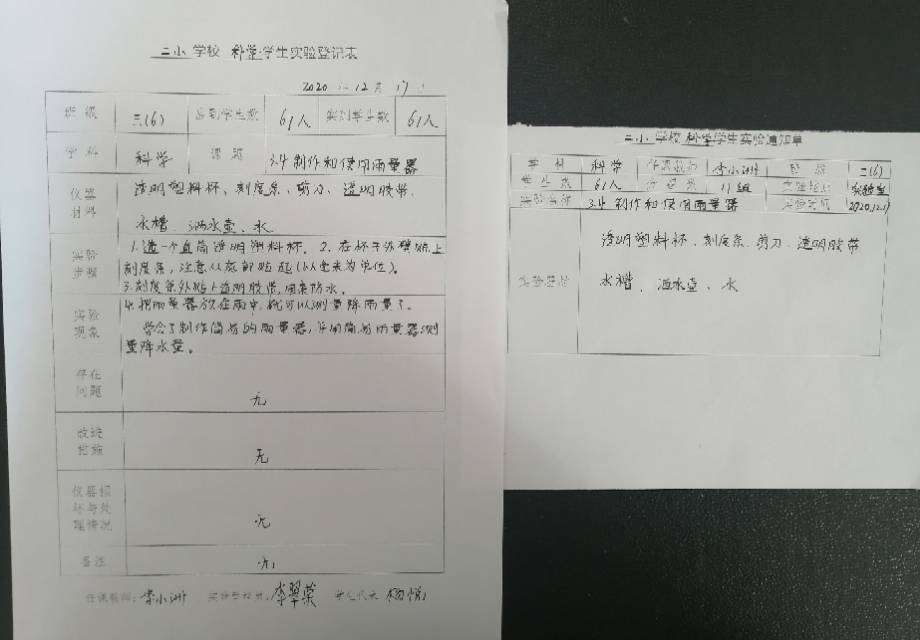 二小 学校 科学 学生实验登记表
2020 年 12 月 17 日
班级 三(6) 应到学生数 61人 实到学生数 61人
学科 科学 课题 3.4 制作和使用雨量器
仪器材料 透明塑料杯、刻度条、剪刀、透明胶带、
水槽、洒水壶、水
实验步骤 1.选一个直筒透明塑料杯。2.在杯子外壁贴上
刻度条，注意从底部贴起(以毫米为单位)。
3.刻度条外贴上透明胶带,用来防水。
4.把雨量器放在雨中,就可以测量降雨量了。
实验现象 学会了制作简易的雨量器,并用简易雨量器测
量降水量。
存在问题 无
改进措施 无
仪器损坏与处理情况 无
备注 无
任课教师: 李小洲 实验管理员: 李翠荣 学生代表
二小 学校 科学 学生实验通知单
学科 科学 任课教师 李小洲 班级 三(6)
学生数 61人 分组数 11组 实验地点 实验室
实验名称 3.4 制作和使用雨量器 实验时间
实验器材 透明塑料杯、刻度条、剪刀、透明胶带
水槽、洒水壶、水